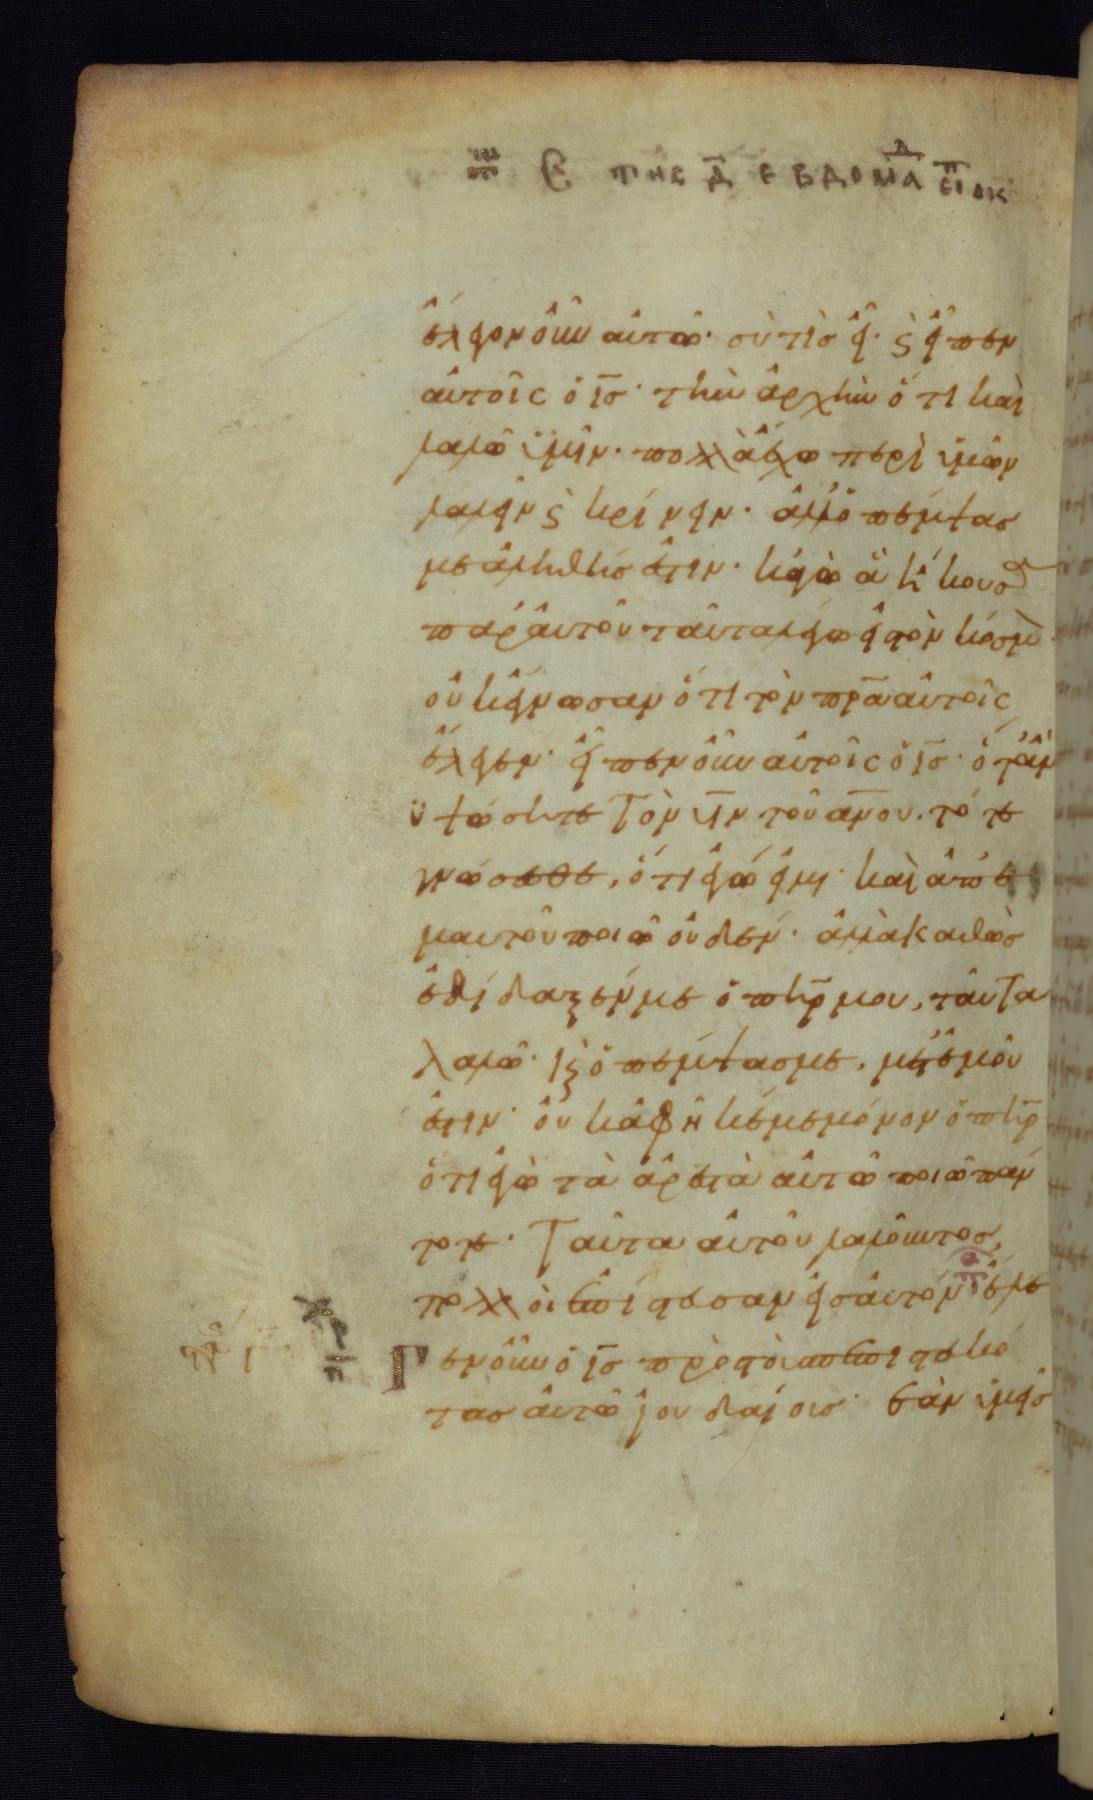 Ε ΤΗΣ Δ ΕΒΔΟΜΑΔ
ἔλεγον οὖν αὐτῶ· σὺ τίς εἶ· ϛ εἶπεν
αὐτοῖς ὁ ις· τὴν ἀρχὴν ὅτι καὶ
λαλῶ ὑμῖν· πολλὰ ἔχω περὶ ὑμῶν
λαλεῖν ϛ κρίνειν· ἀλλ' ὁ πέμψας
με ἀληθής ἐστιν· κἀγὼ ἃ ἤκουσα
παρ' αὐτοῦ ταῦτα λέγω εἰς τὸν κόσμον·
οὐκ ἔγνωσαν ὅτι τὸν πρα αὐτοῖς
ἔλεγεν· εἶπεν οὖν αὐτοῖς ὁ ις· ὅταν
ὑψώσητε τὸν υν τοῦ ανου. τότε
γνώσεσθε, ὅτι ἐγώ εἰμι· καὶ ἀπ' ἐ
μαυτοῦ ποιῶ οὐδέν· ἀλλὰ καθὼς
ἐδίδαξέν με ὁ πηρ μου, ταῦτα
λαλῶ· ϛ ὁ πέμψας με, μετ' ἐμοῦ
ἐστιν· οὐκ ἀφῆκέ με μόνον ὁ πηρ
ὅτι ἐγὼ τὰ ἀρεστὰ αὐτῶ ποιῶ πάν
τοτε· Ταῦτα αὐτοῦ λαλοῦντος,
πολλοὶ ἐπίστευσαν εἰς αὐτόν· ἔλε
Γεν οὖν ὁ ις πρὸς τοὺς πεπιστευκό
τας αὐτῶ ἰουδαίους· ἐὰν ὑμεῖς